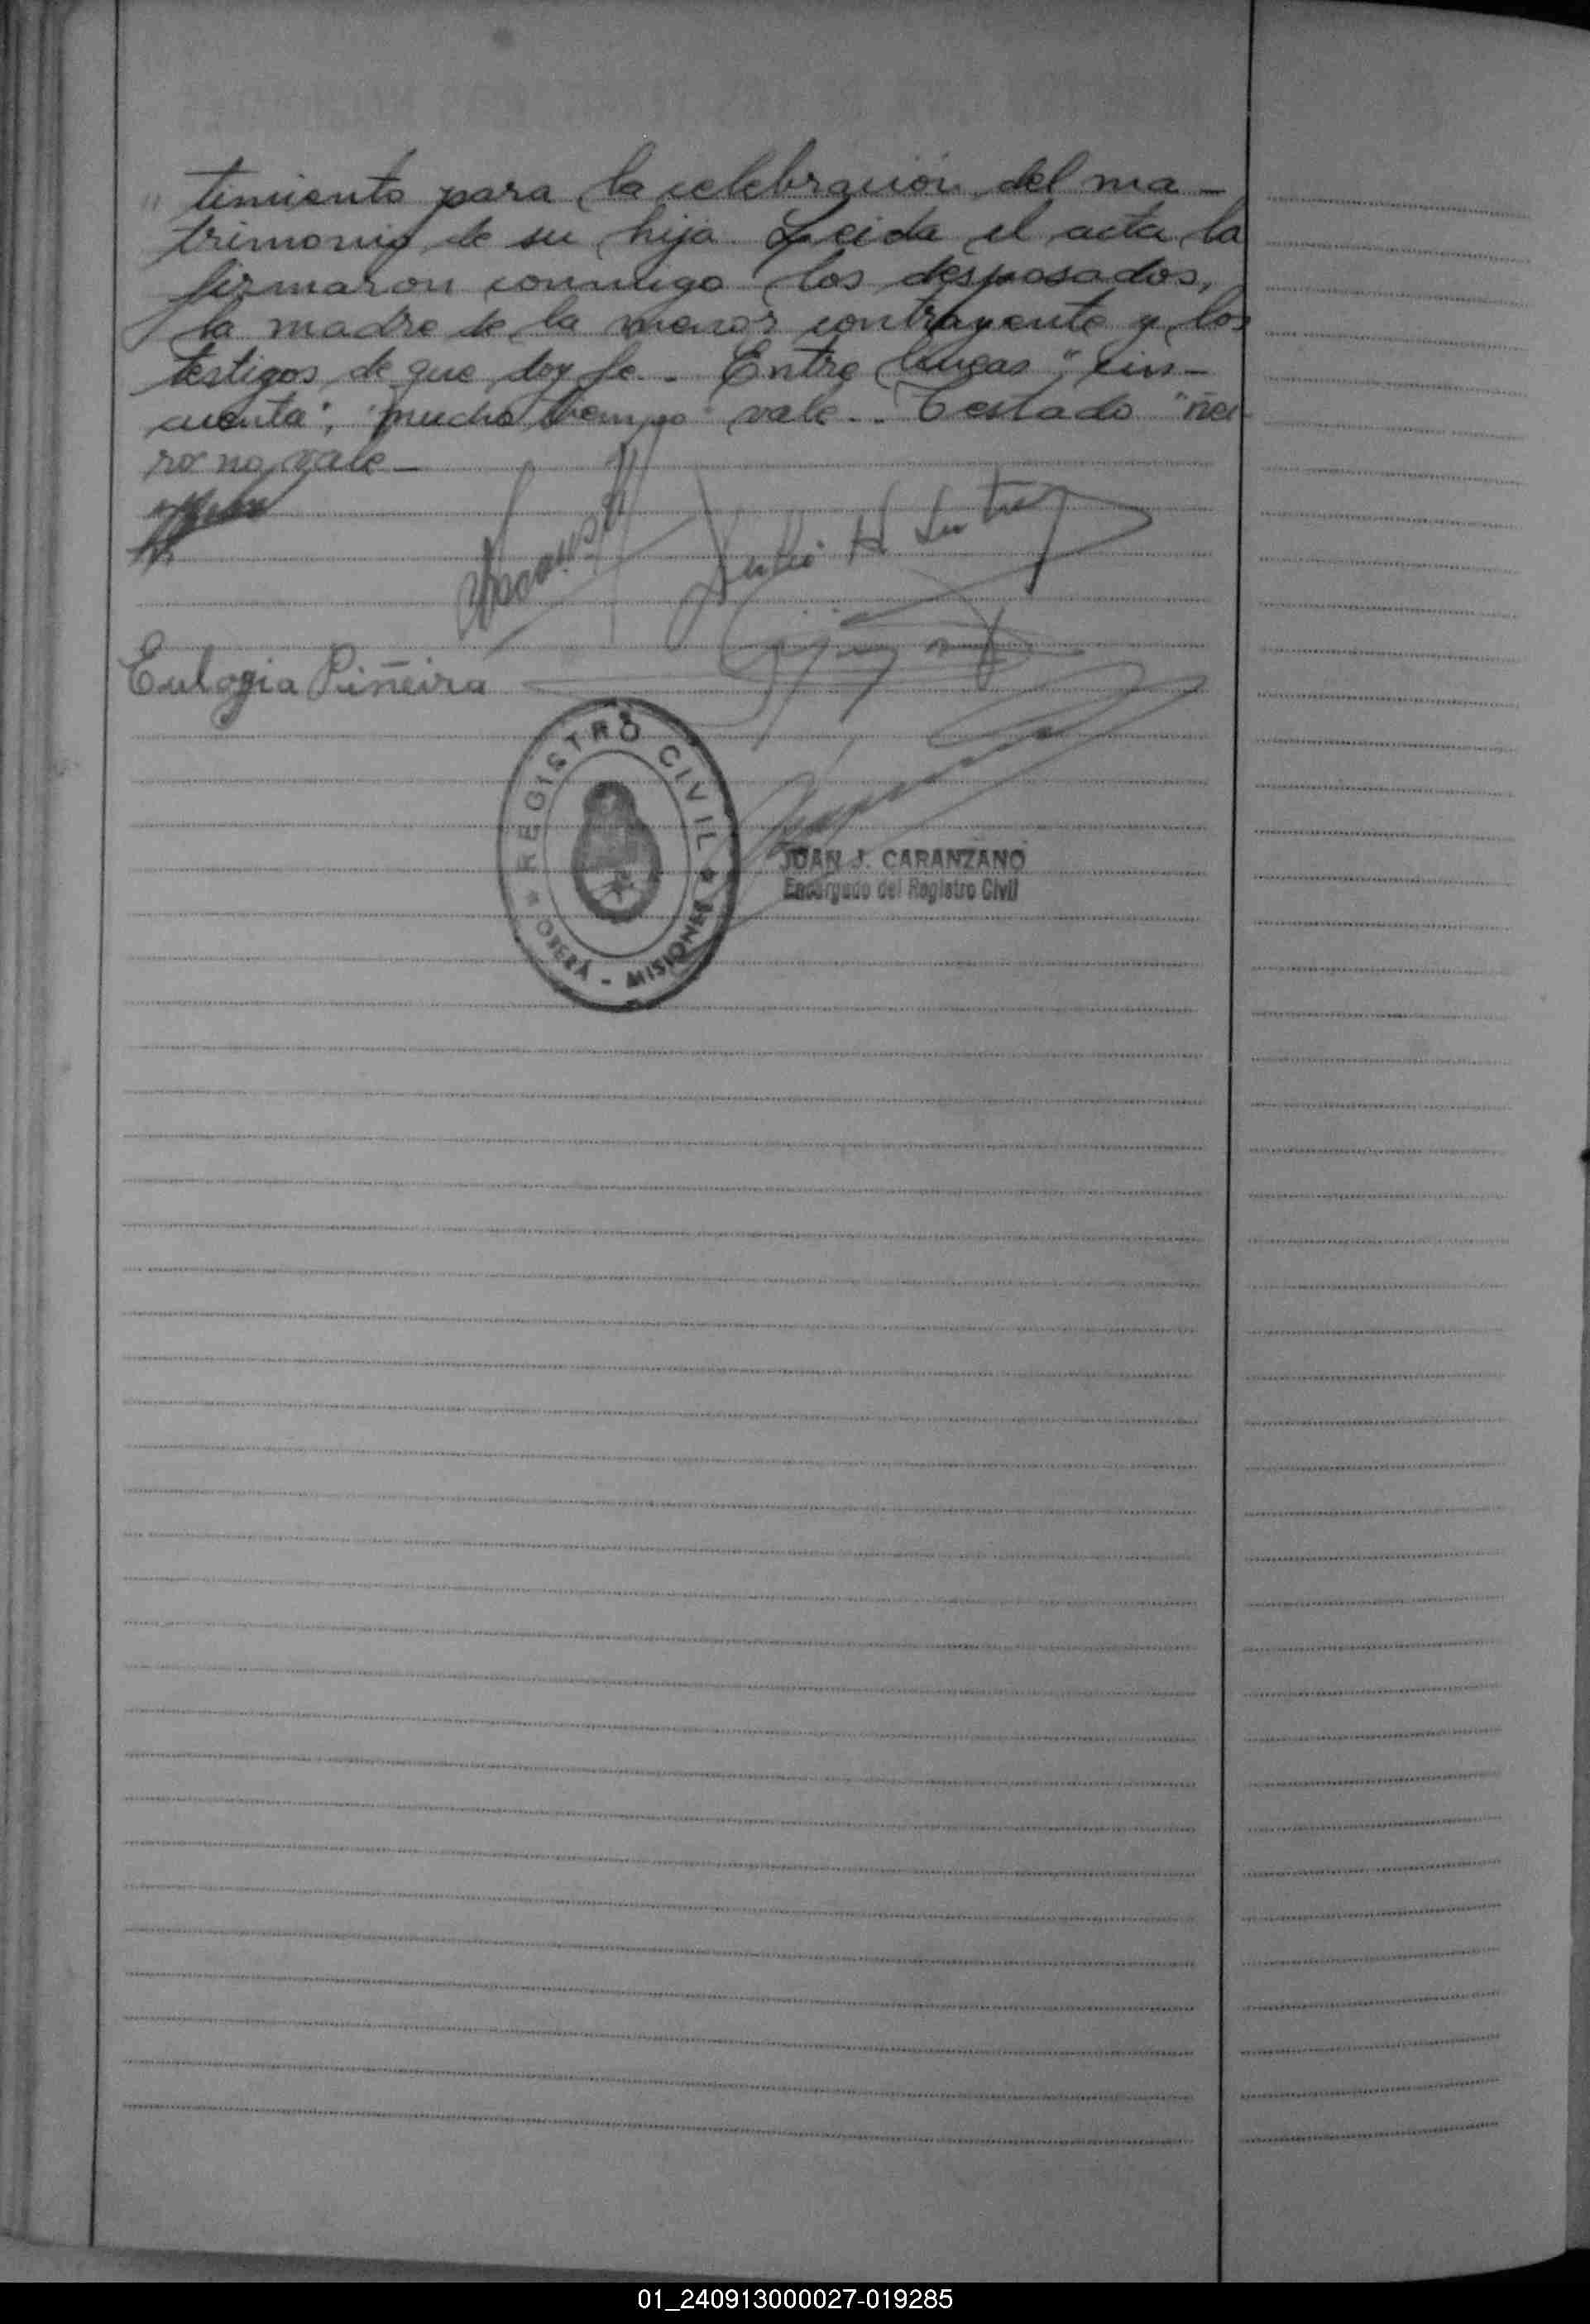 timiento para la celebración del ma-
trimonio de su hija. Leida el acta la
firmaron conmigo los desposados,
la madre de la menor contrayente y los
testigos de que doy fe.. Entre lineas "cin-
cuenta"; "mucho tiempo" vale.. Testado "ñei
ro" no vale-
Julio H
Eulogia Piñeira
REGISTRO CIVIL
OBERÁ - MISIONES
JUAN J. CARANZANO
Encargado del Registro Civil
01_240913000027-019285